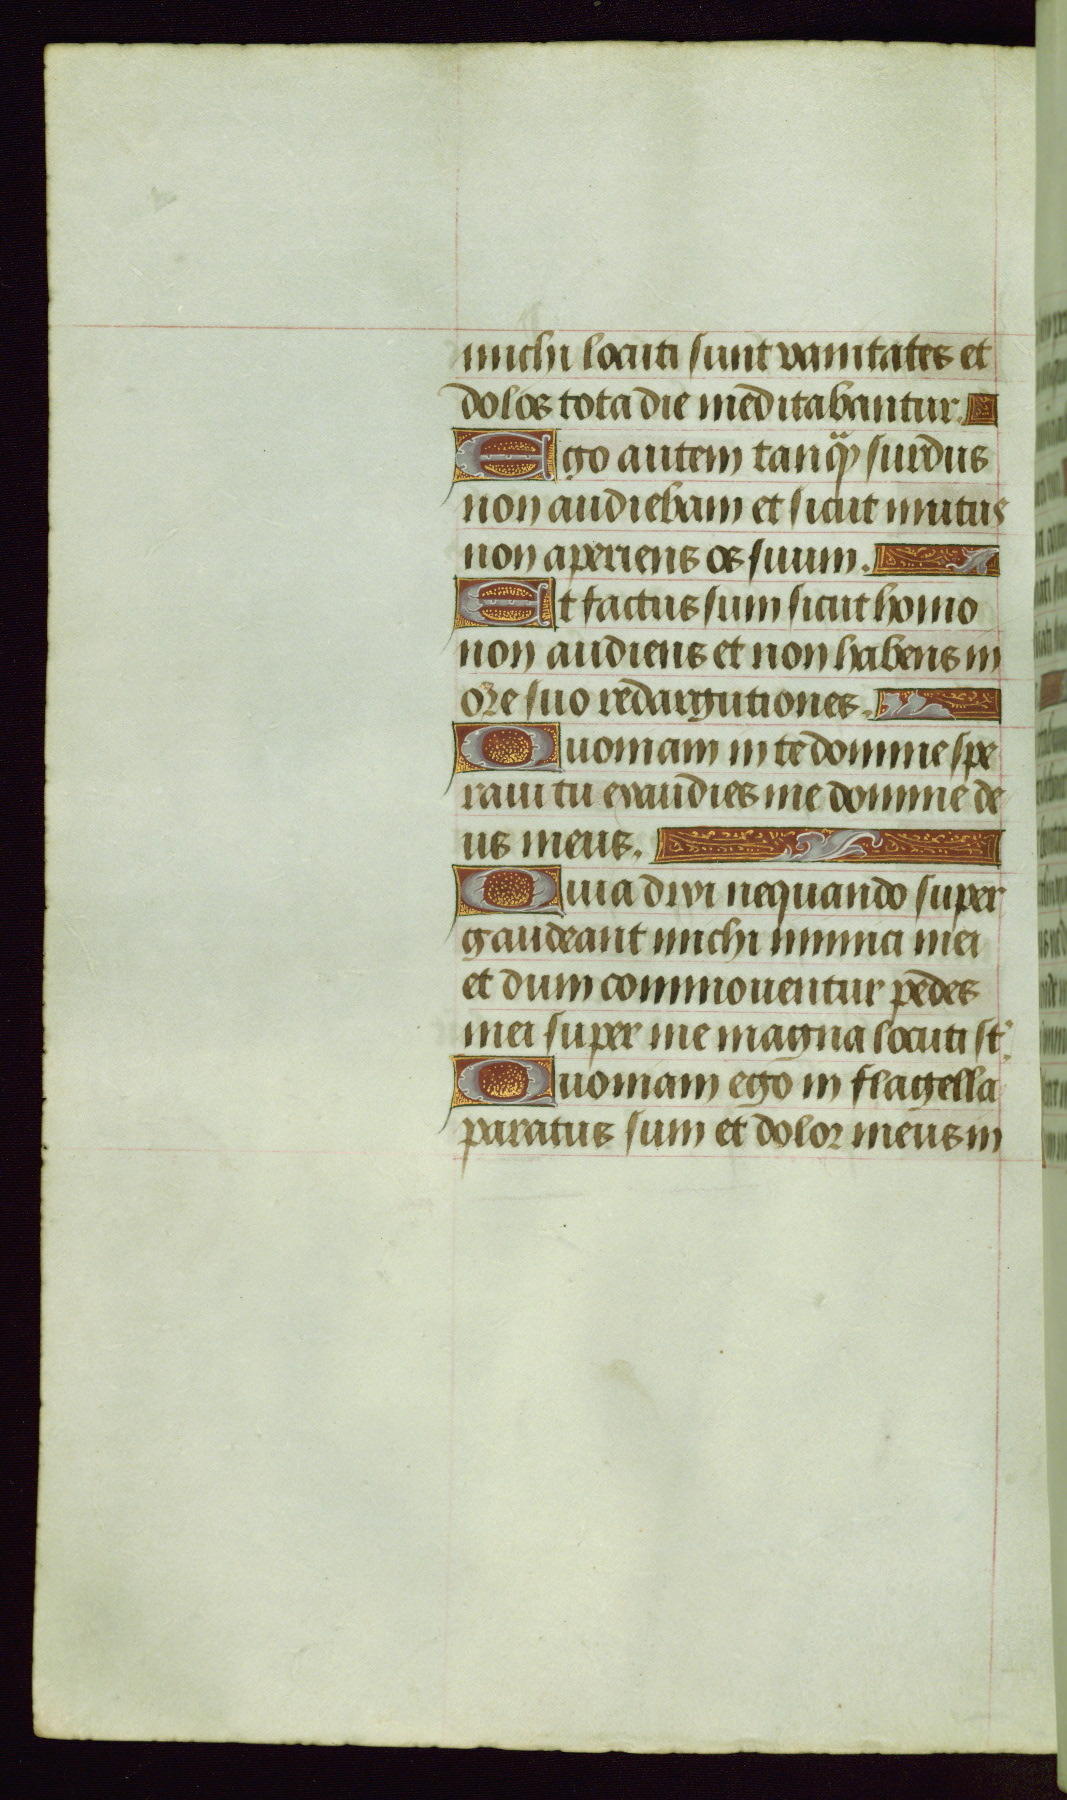 michi locuti sunt vanitates et
dolos tota die meditabantur.
Ego autem tanq̄ surdus
non audiebam et sicut mutus
non aperiens os suum.
Et factus sum sicut homo
non audiens et non habens in
ore suo redargutiones.
Quoniam in te domine spe
raui tu exaudies me domine de
us meus.
Quia dixi nequando super
gaudeant michi inimici mei
et dum commouentur pedes
mei super me magna locuti st̄.
Quoniam ego in flagella
paratus sum et dolor meus in